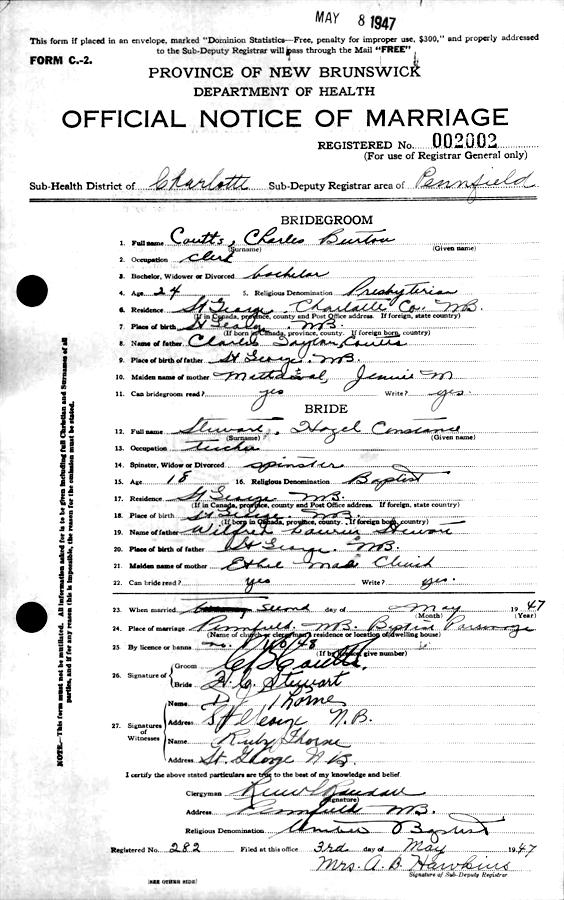 MAY 8 1947
This form if placed in an envelope, marked "Dominion Statistics—Free, penalty for improper use, $300," and properly addressed
to the Sub-Deputy Registrar will pass through the Mail "FREE"
FORM C.-2.
PROVINCE OF NEW BRUNSWICK
DEPARTMENT OF HEALTH
OFFICIAL NOTICE OF MARRIAGE
REGISTERED No. 002002
(For use of Registrar General only)
Sub-Health District of Charlotte Sub-Deputy Registrar area of Pennfield
BRIDEGROOM
1. Full name Coutts, Charles Burton
(Surname) (Given name)
2. Occupation clerk
3. Bachelor, Widower or Divorced bachelor
4. Age 24 5. Religious Denomination Presbyterian
6. Residence St George, Charlotte Co. N.B.
(If in Canada, province, county and Post Office address. If foreign, state country)
7. Place of birth St George, N.B.
(If born in Canada, province, county. If foreign born, country)
8. Name of father Charles Coutts
9. Place of birth of father St George, N.B.
10. Maiden name of mother Jennie M
11. Can bridegroom read? yes Write? yes.
BRIDE
12. Full name Stewart, Hazel Constance
(Surname) (Given name)
13. Occupation
14. Spinster, Widow or Divorced spinster
15. Age 18 16. Religious Denomination Baptist
17. Residence St George N.B.
(If in Canada, province, county and Post Office address. If foreign, state country)
18. Place of birth St George, N.B.
(If born in Canada, province, county. If foreign born, country)
19. Name of father Wilfred Stewart
20. Place of birth of father St George N.B.
21. Maiden name of mother Ethel Mae
22. Can bride read? yes Write? yes.
23. When married second day of May 1947
(Month) (Year)
24. Place of marriage Pennfield N.B. Baptist Parsonage
(Name of church or clergyman's residence or location of dwelling house)
25. By licence or banns no.
(If by licence give number)
26. Signature of Groom C B Coutts
Bride H. C. Stewart
27. Signatures of Witnesses
Name Thorne
Address St George N.B.
Name Ruby Thorne
Address St. George N.B.
I certify the above stated particulars are true to the best of my knowledge and belief.
Clergyman
(Signature)
Address Pennfield N.B.
Religious Denomination United Baptist
Registered No. 282 Filed at this office 3rd day of May 1947
Mrs. A. B. Hawkins
Signature of Sub-Deputy Registrar
(SEE OTHER SIDE)
NOTE.—This form must not be mutilated. All information asked for is to be given including full Christian and Surnames of all
parties, and if for any reason this is impossible, the reason for the omission must be stated.